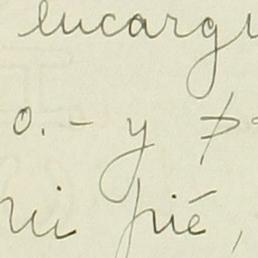 encargu
o.- y p
ni pié,